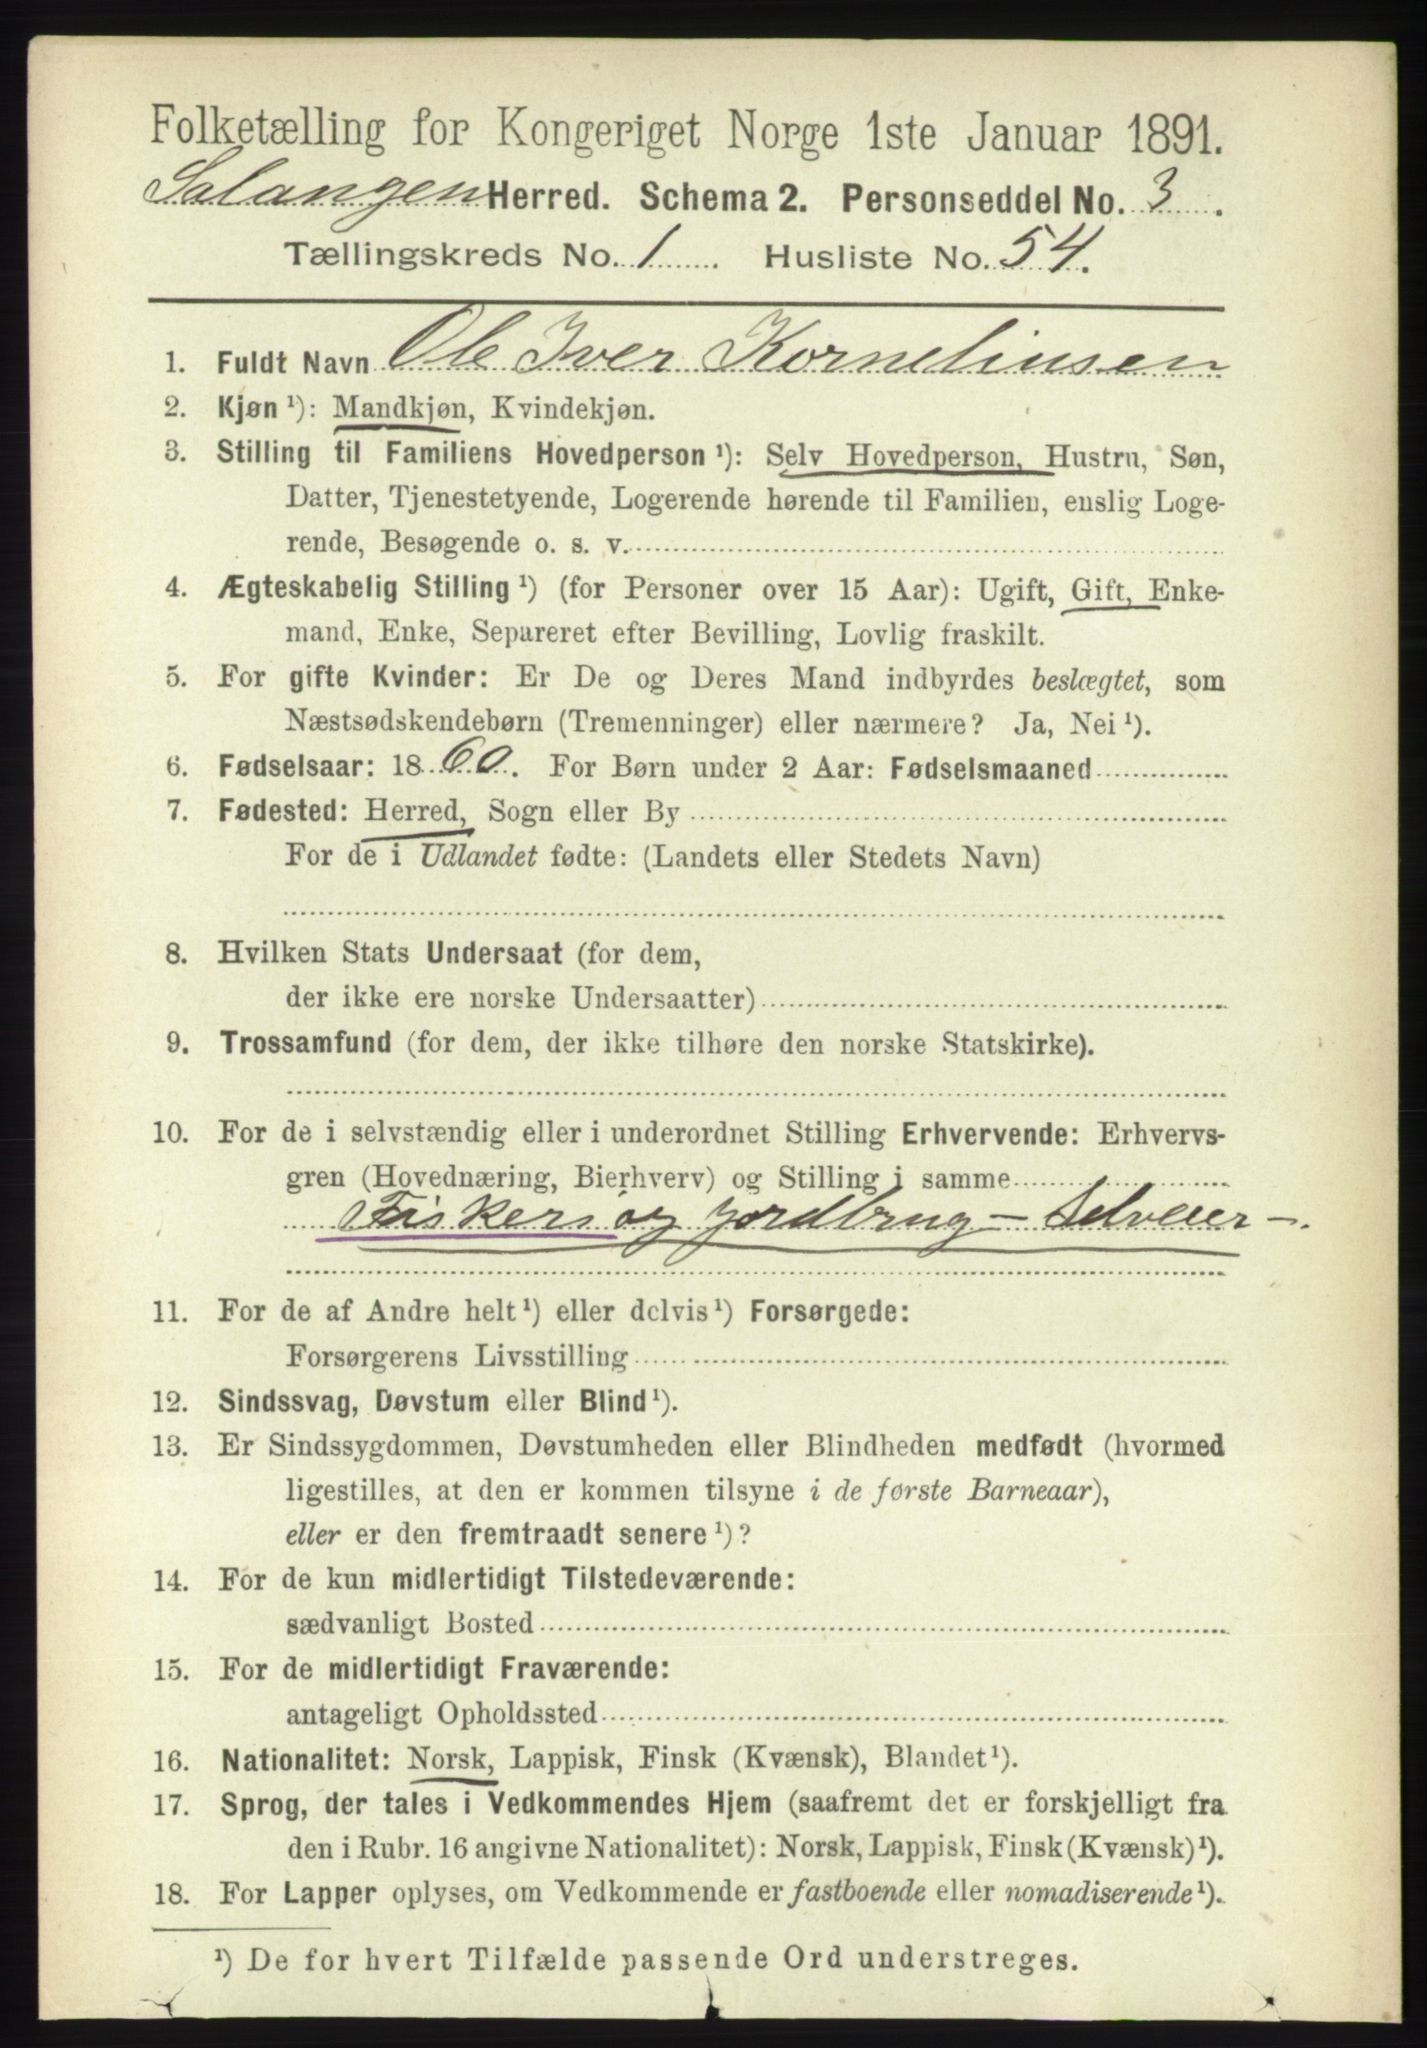 Folketælling for Kongeriget Norge 1ste Januar 1891.
Salangen Herred. Schema 2. Personseddel No. 3.
Tællingskreds No. 1. Husliste No. 54.
1. Fuldt Navn Ole Iver Kornelinsen
2. Kjøn ¹): Mandkjøn, Kvindekjøn.
3. Stilling til Familiens Hovedperson ¹): Selv Hovedperson, Hustru, Søn,
Datter, Tjenestetyende, Logerende hørende til Familien, enslig Loge-
rende, Besøgende o. s. v.
4. Ægteskabelig Stilling ¹) (for Personer over 15 Aar): Ugift, Gift, Enke-
mand, Enke, Separeret efter Bevilling, Lovlig fraskilt.
5. For gifte Kvinder: Er De og Deres Mand indbyrdes beslægtet, som
Næstsødskendebørn (Tremenninger) eller nærmere? Ja, Nei ¹).
6. Fødselsaar: 1860. For Børn under 2 Aar: Fødselsmaaned
7. Fødested: Herred, Sogn eller By
For de i Udlandet fødte: (Landets eller Stedets Navn)
8. Hvilken Stats Undersaat (for dem,
der ikke ere norske Undersaatter)
9. Trossamfund (for dem, der ikke tilhøre den norske Statskirke).
10. For de i selvstændig eller i underordnet Stilling Erhvervende: Erhvervs-
gren (Hovednæring, Bierhverv) og Stilling i samme
Fiskeri og jordbrug - Selveier -.
11. For de af Andre helt ¹) eller delvis ¹) Forsørgede:
Forsørgerens Livsstilling
12. Sindssvag, Døvstum eller Blind ¹).
13. Er Sindssygdommen, Døvstumheden eller Blindheden medfødt (hvormed
ligestilles, at den er kommen tilsyne i de første Barneaar),
eller er den fremtraadt senere ¹)?
14. For de kun midlertidigt Tilstedeværende:
sædvanligt Bosted
15. For de midlertidigt Fraværende:
antageligt Opholdssted
16. Nationalitet: Norsk, Lappisk, Finsk (Kvænsk), Blandet ¹).
17. Sprog, der tales i Vedkommendes Hjem (saafremt det er forskjelligt fra
den i Rubr. 16 angivne Nationalitet): Norsk, Lappisk, Finsk (Kvænsk) ¹).
18. For Lapper oplyses, om Vedkommende er fastboende eller nomadiserende ¹).
¹) De for hvert Tilfælde passende Ord understreges.